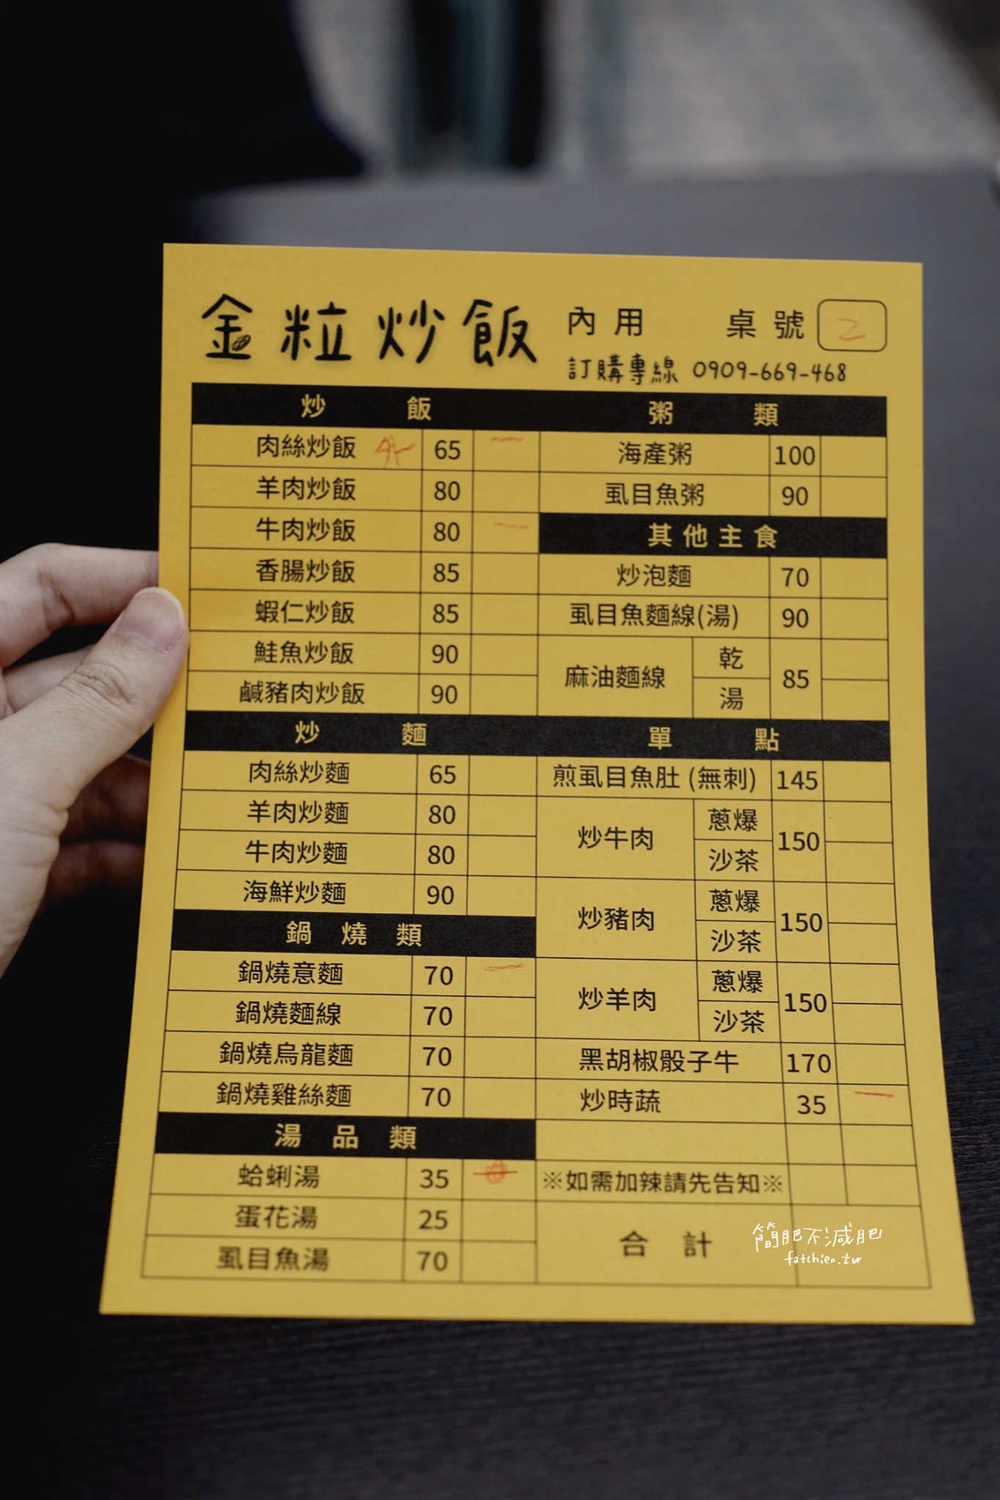 金粒炒飯
內用 桌號 2
訂購專線 0909-669-468
炒飯
肉絲炒飯 外 65 一
羊肉炒飯 80
牛肉炒飯 80 一
香腸炒飯 85
蝦仁炒飯 85
鮭魚炒飯 90
鹹豬肉炒飯 90
炒麵
肉絲炒麵 65
羊肉炒麵 80
牛肉炒麵 80
海鮮炒麵 90
鍋燒類
鍋燒意麵 70 一
鍋燒麵線 70
鍋燒烏龍麵 70
鍋燒雞絲麵 70
湯品類
蛤蜊湯 35
蛋花湯 25
虱目魚湯 70
粥類
海產粥 100
虱目魚粥 90
其他主食
炒泡麵 70
虱目魚麵線(湯) 90
麻油麵線 乾 85
湯
單點
煎虱目魚肚(無刺) 145
炒牛肉 蔥爆 150
沙茶
炒豬肉 蔥爆 150
沙茶
炒羊肉 蔥爆 150
沙茶
黑胡椒骰子牛 170
炒時蔬 35 一
※如需加辣請先告知※
合計
簡肥不減肥
fatchien.tw